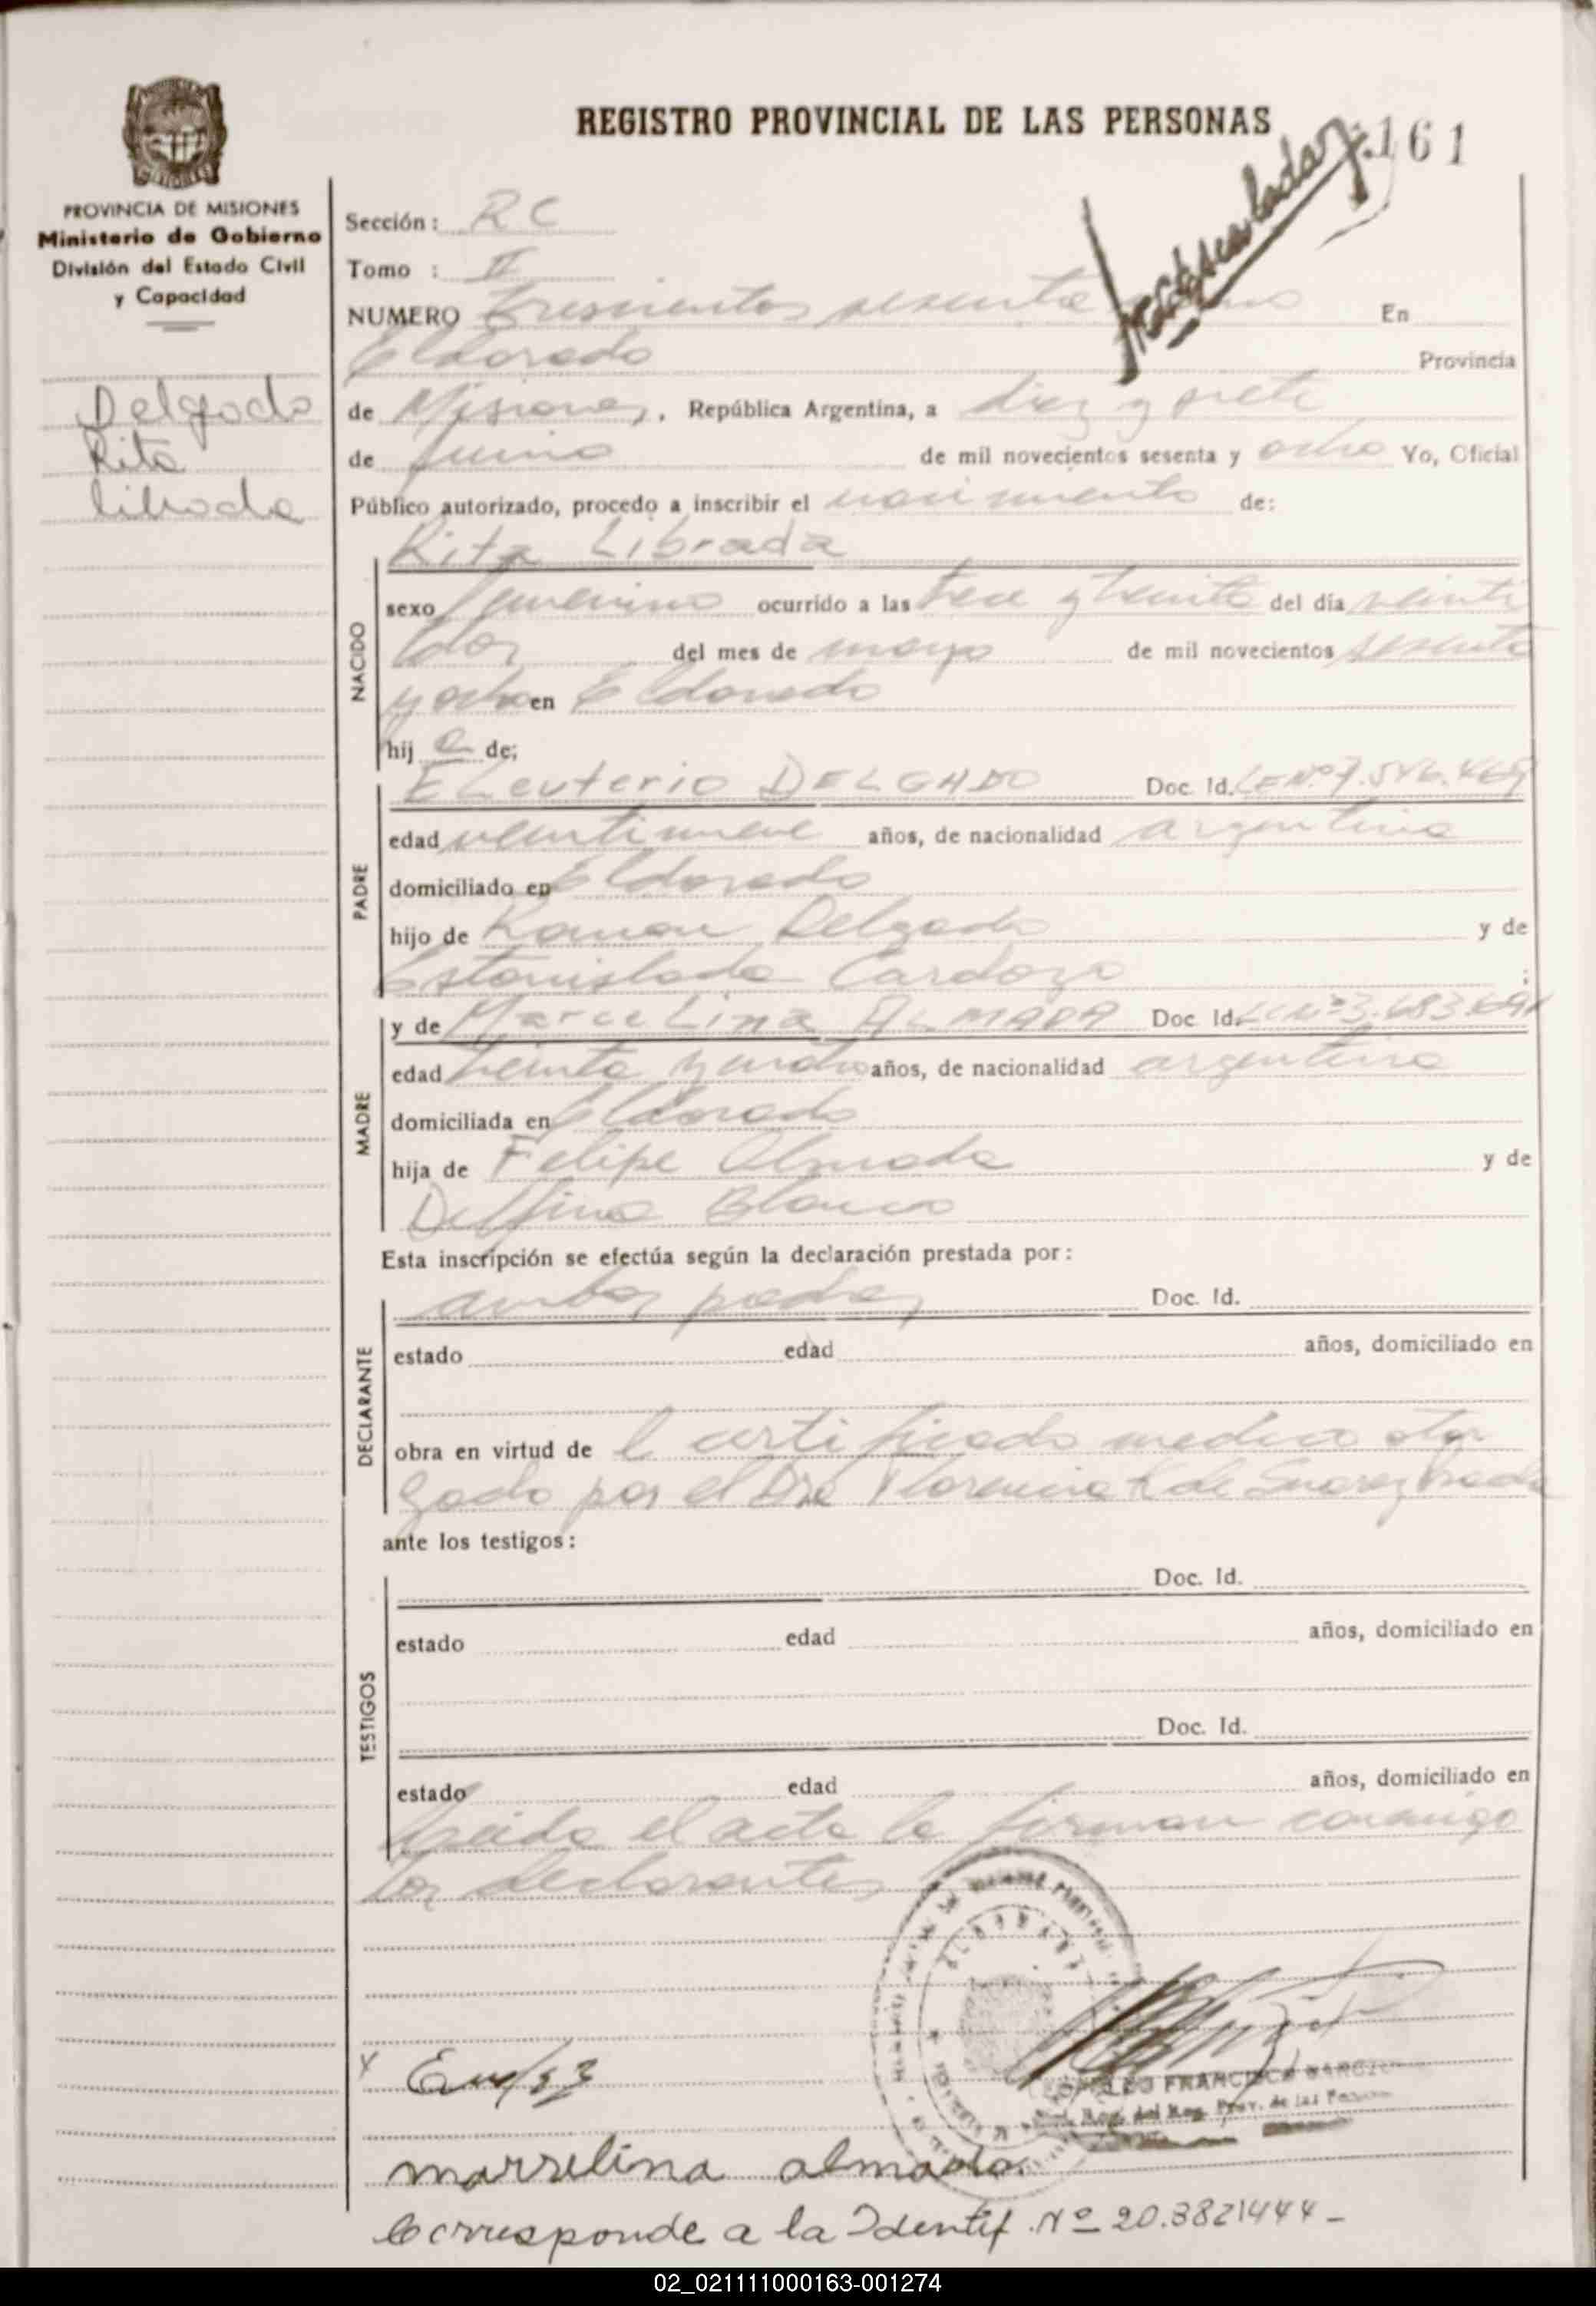 REGISTRO PROVINCIAL DE LAS PERSONAS
161
PROVINCIA DE MISIONES
Ministerio de Gobierno
División del Estado Civil
y Capacidad
Delgado
Rita
Librada
Sección: RC
Tomo : II
NUMERO Trescientos sesenta En
Eldorado Provincia
de Misiones, República Argentina, a diez y siete
de junio de mil novecientos sesenta y ocho Yo, Oficial
Público autorizado, procedo a inscribir el nacimiento de:
Rita Librada
NACIDO
sexo femenino ocurrido a las trece y treinta del día veinti
dos del mes de mayo de mil novecientos sesenta
y ocho en Eldorado
hij a de;
PADRE
Eleuterio DELGADO Doc. Id. LE Nº 7.546.469
edad veintinueve años, de nacionalidad argentina
domiciliado en Eldorado
hijo de Ramon Delgado y de
Estanislada Cardozo ;
MADRE
y de Marcelina ALMADA Doc. Id. LC Nº 3.683.691
edad treinta y años, de nacionalidad argentina
domiciliada en Eldorado
hija de Felipe Almada y de
Delfina Blanco
Esta inscripción se efectúa según la declaración prestada por:
DECLARANTE
ambos padres Doc. Id.
estado edad años, domiciliado en
obra en virtud de l certificado medico otor
gado por el Dra Florencia K de Suarez
ante los testigos:
TESTIGOS
Doc. Id.
estado edad años, domiciliado en
Doc. Id.
estado edad años, domiciliado en
Leida el acta la firman conmigo
los declarantes
ELDORADO
FRANCISCO
Reg. del Reg. Prov. de las
x
marselina almada.
Corresponde a la Identif. Nº 20.3821444 -
02_021111000163-001274